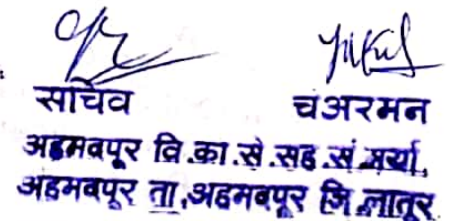 सचिव चेअरमन
अहमदपूर वि.का.से.सह.सं.मर्या,
अहमदपूर ता.अहमदपूर जि.लातूर